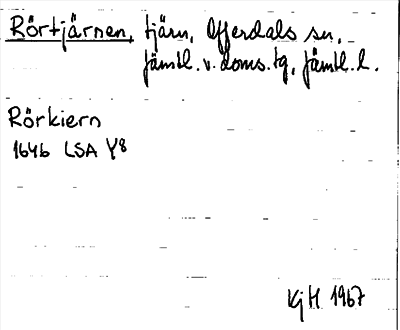 Rörtjärnen, tjärn, Offerdals sn,
Jämtl. v. doms. tg, Jämtl. l.
Rörkiern
1646 LSA Y8
KjH 1967